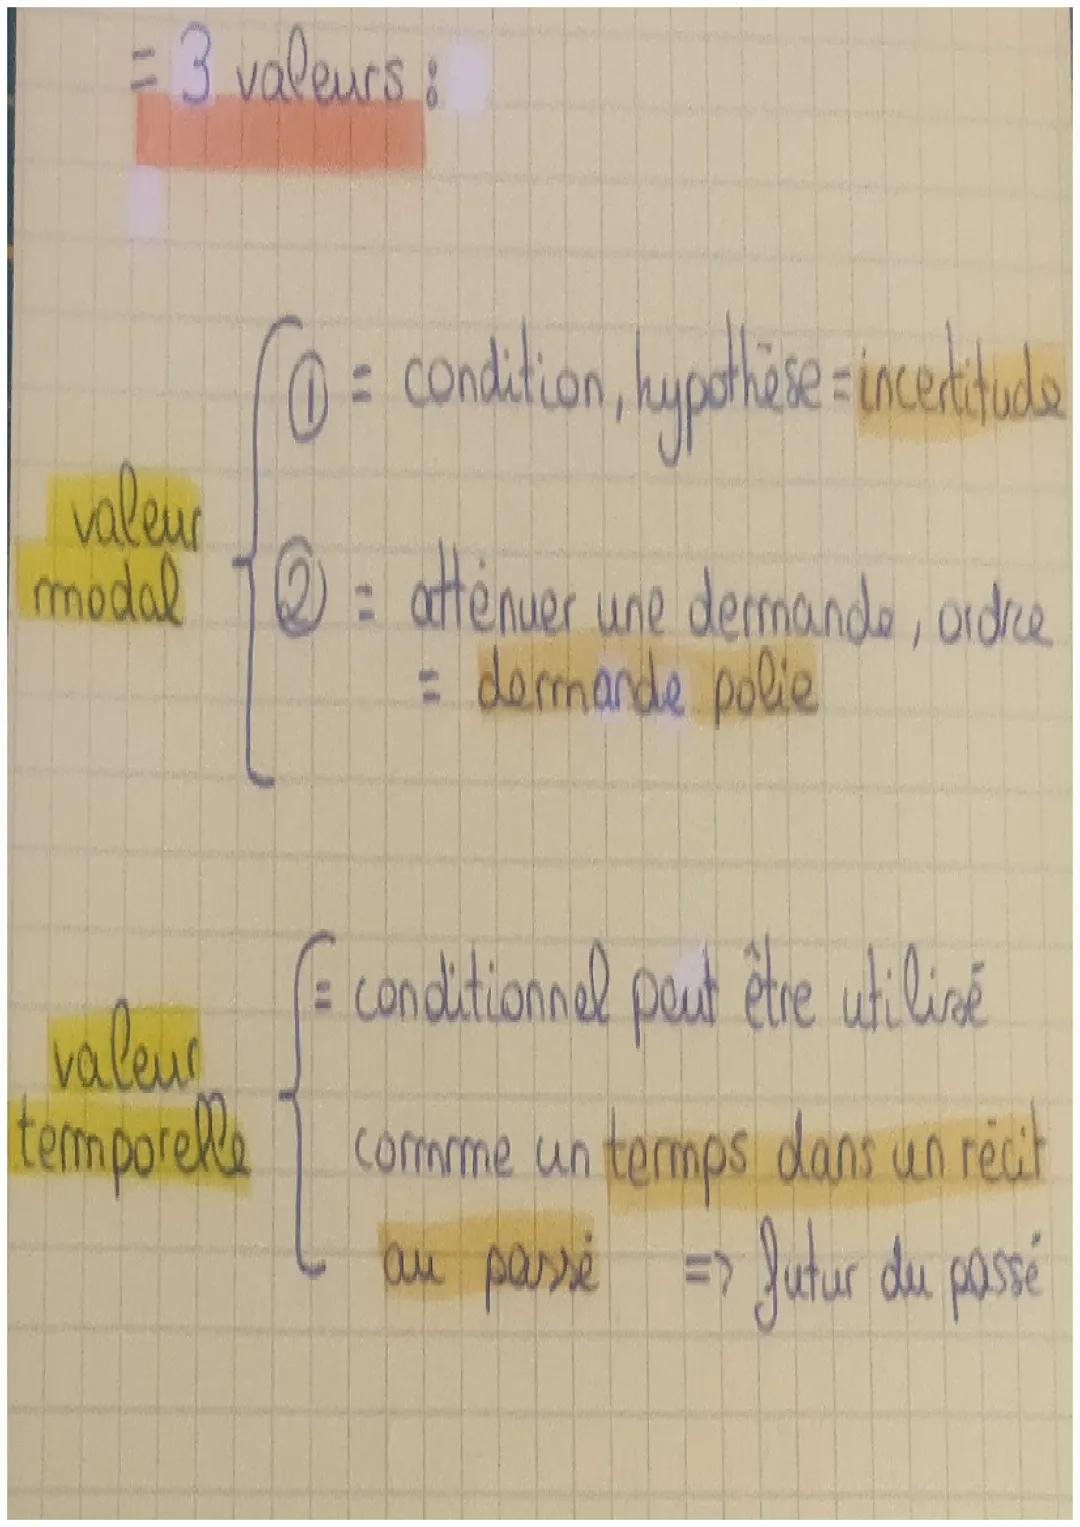 = 3 valeurs :
① = condition, hypothèse = incertitude
valeur
modal
② = atténuer une demande, ordre
= demande polie
= conditionnel peut être utilisé
valeur
temporelle
comme un temps dans un récit
au passé => futur du passé